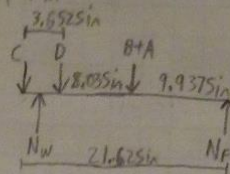 3.6525in
C D B+A
8.035in 9.9375in
Nw NF
21.625in